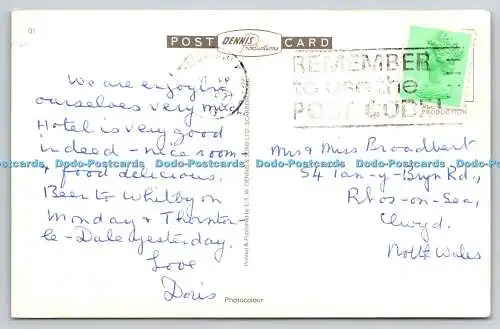 01
POST DENNIS Productions CARD
REMEMBER
to use the
POST CODE
We are enjoying
ourselves very much
Hotel is very good
indeed - nice room
+ food delicious.
Been to Whitby on
Monday + Thornton-
le-Dale yesterday.
Love
Doris
Mrs + Miss Broadbent
54 Tan-y-Bryn Rd.,
Rhos-on-Sea,
Clwyd.
North Wales
Photocolour
Printed & Published by E. T. W. DENNIS & SONS LTD. SCARBOROUGH
PRODUCTION
Dodo-Postcards Dodo-Postcards Dodo-Postcards Dodo-Postcards Dodo-Postcards